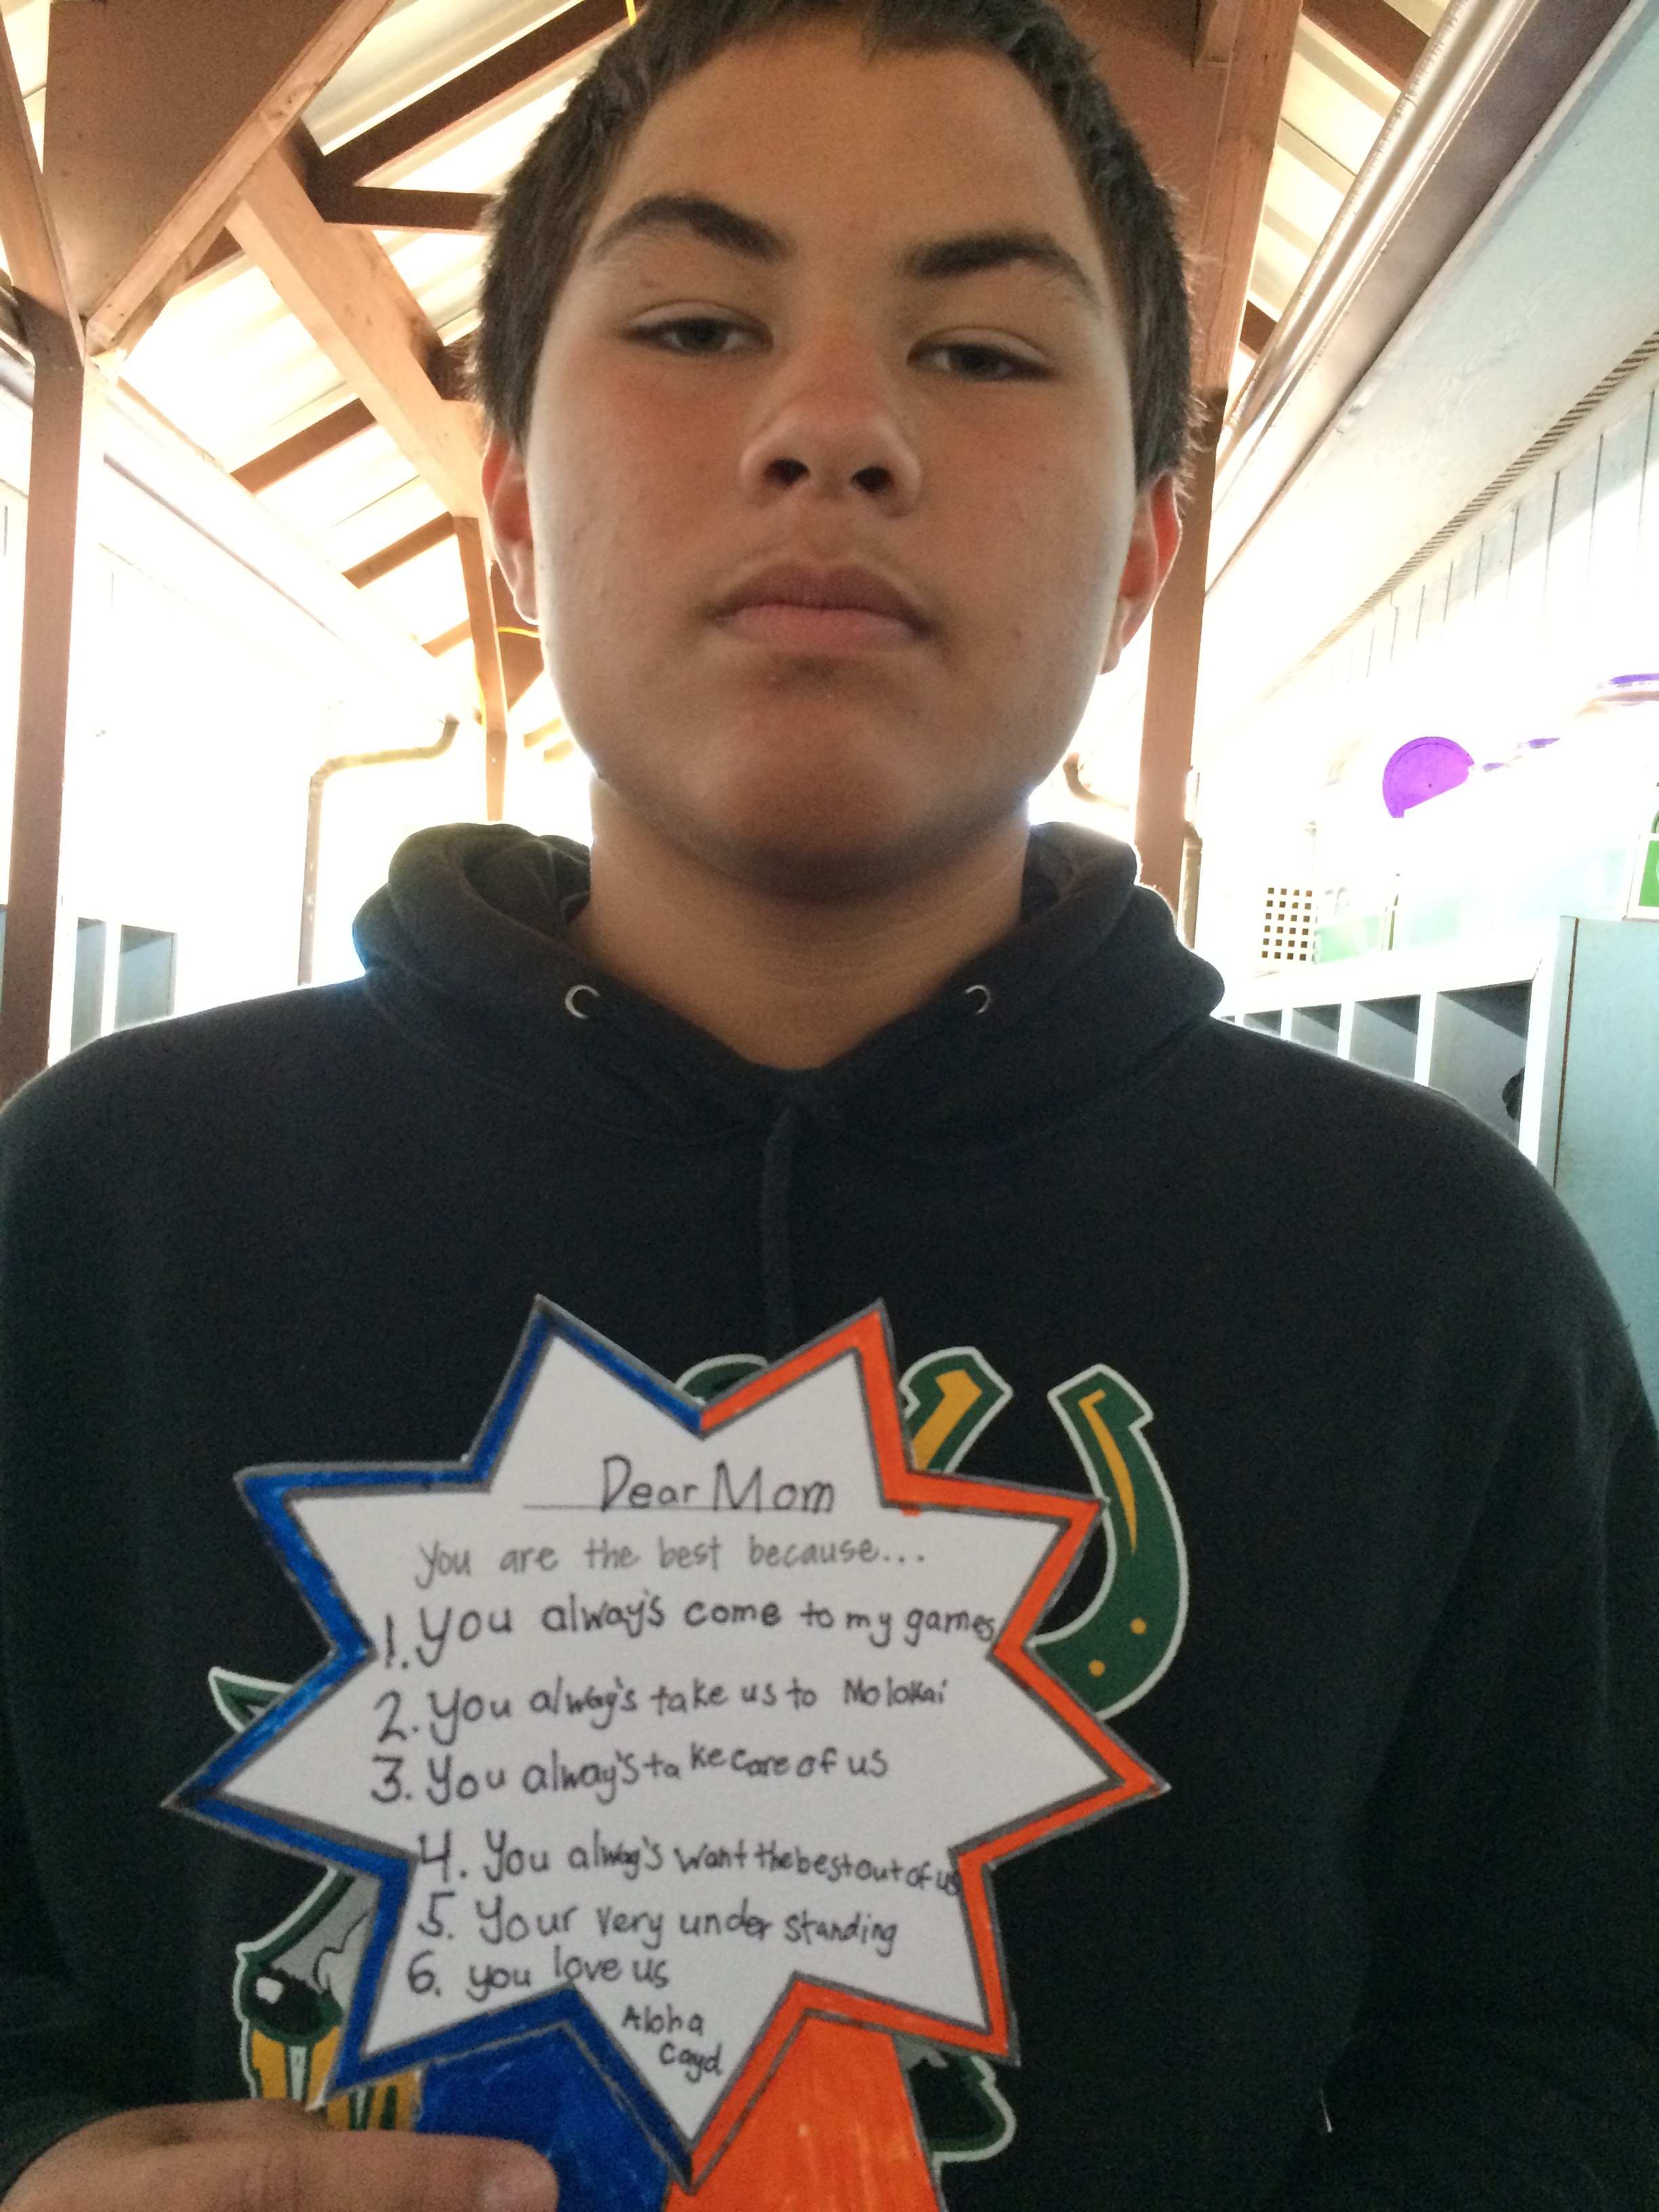 Dear Mom
you are the best because...
1. You alway's come to my games
2. You alway's take us to Molokai
3. You alway's take care of us
4. You alway's want the best out of us
5. Your very under standing
6. you love us
Aloha
Cayd